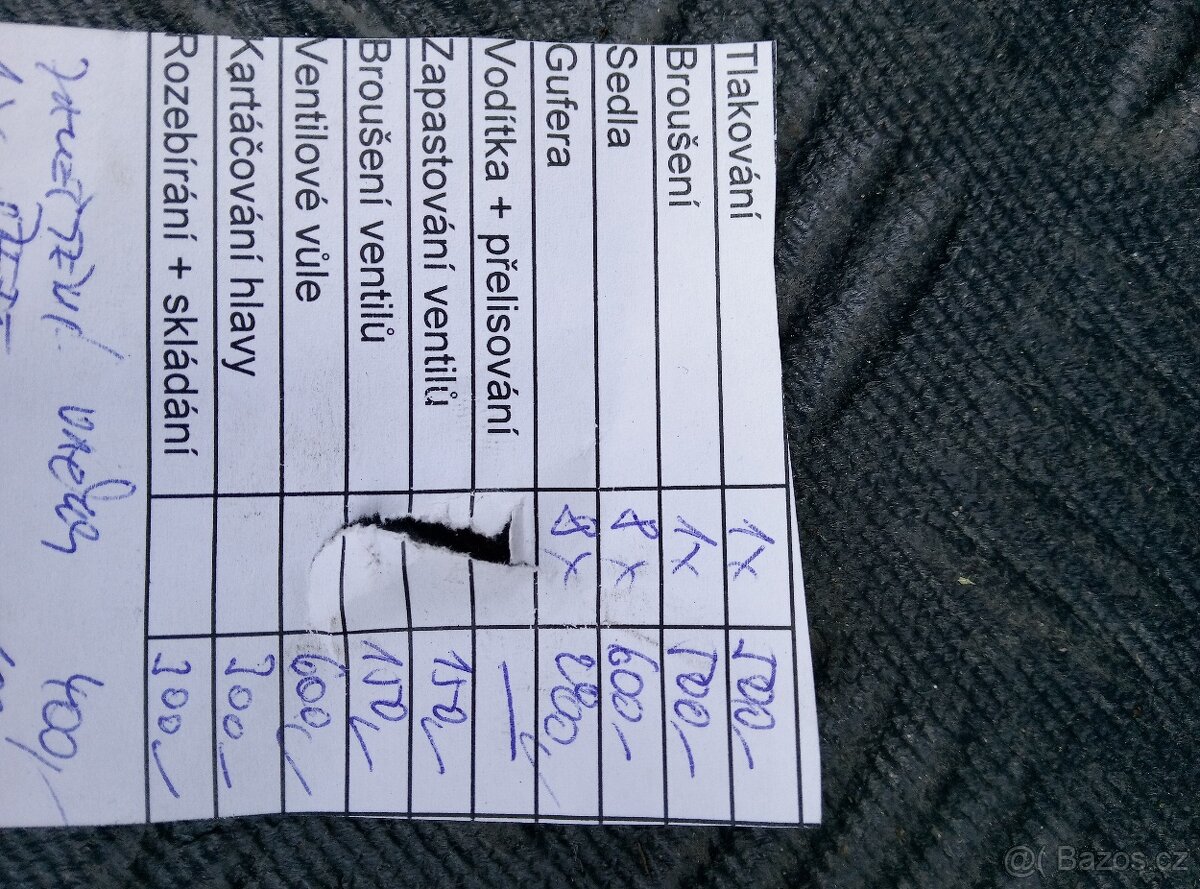 Tlakování 1x 500,-
Broušení 1x 500,-
Sedla 8x 600,-
Gufera 8x 280,-
Vodítka + přelisování —
Zapastování ventilů 150,-
Broušení ventilů 150,-
Ventilové vůle 600,-
Kartáčování hlavy 300,-
Rozebírání + skládání 300,-
400,-
@( Bazos.cz